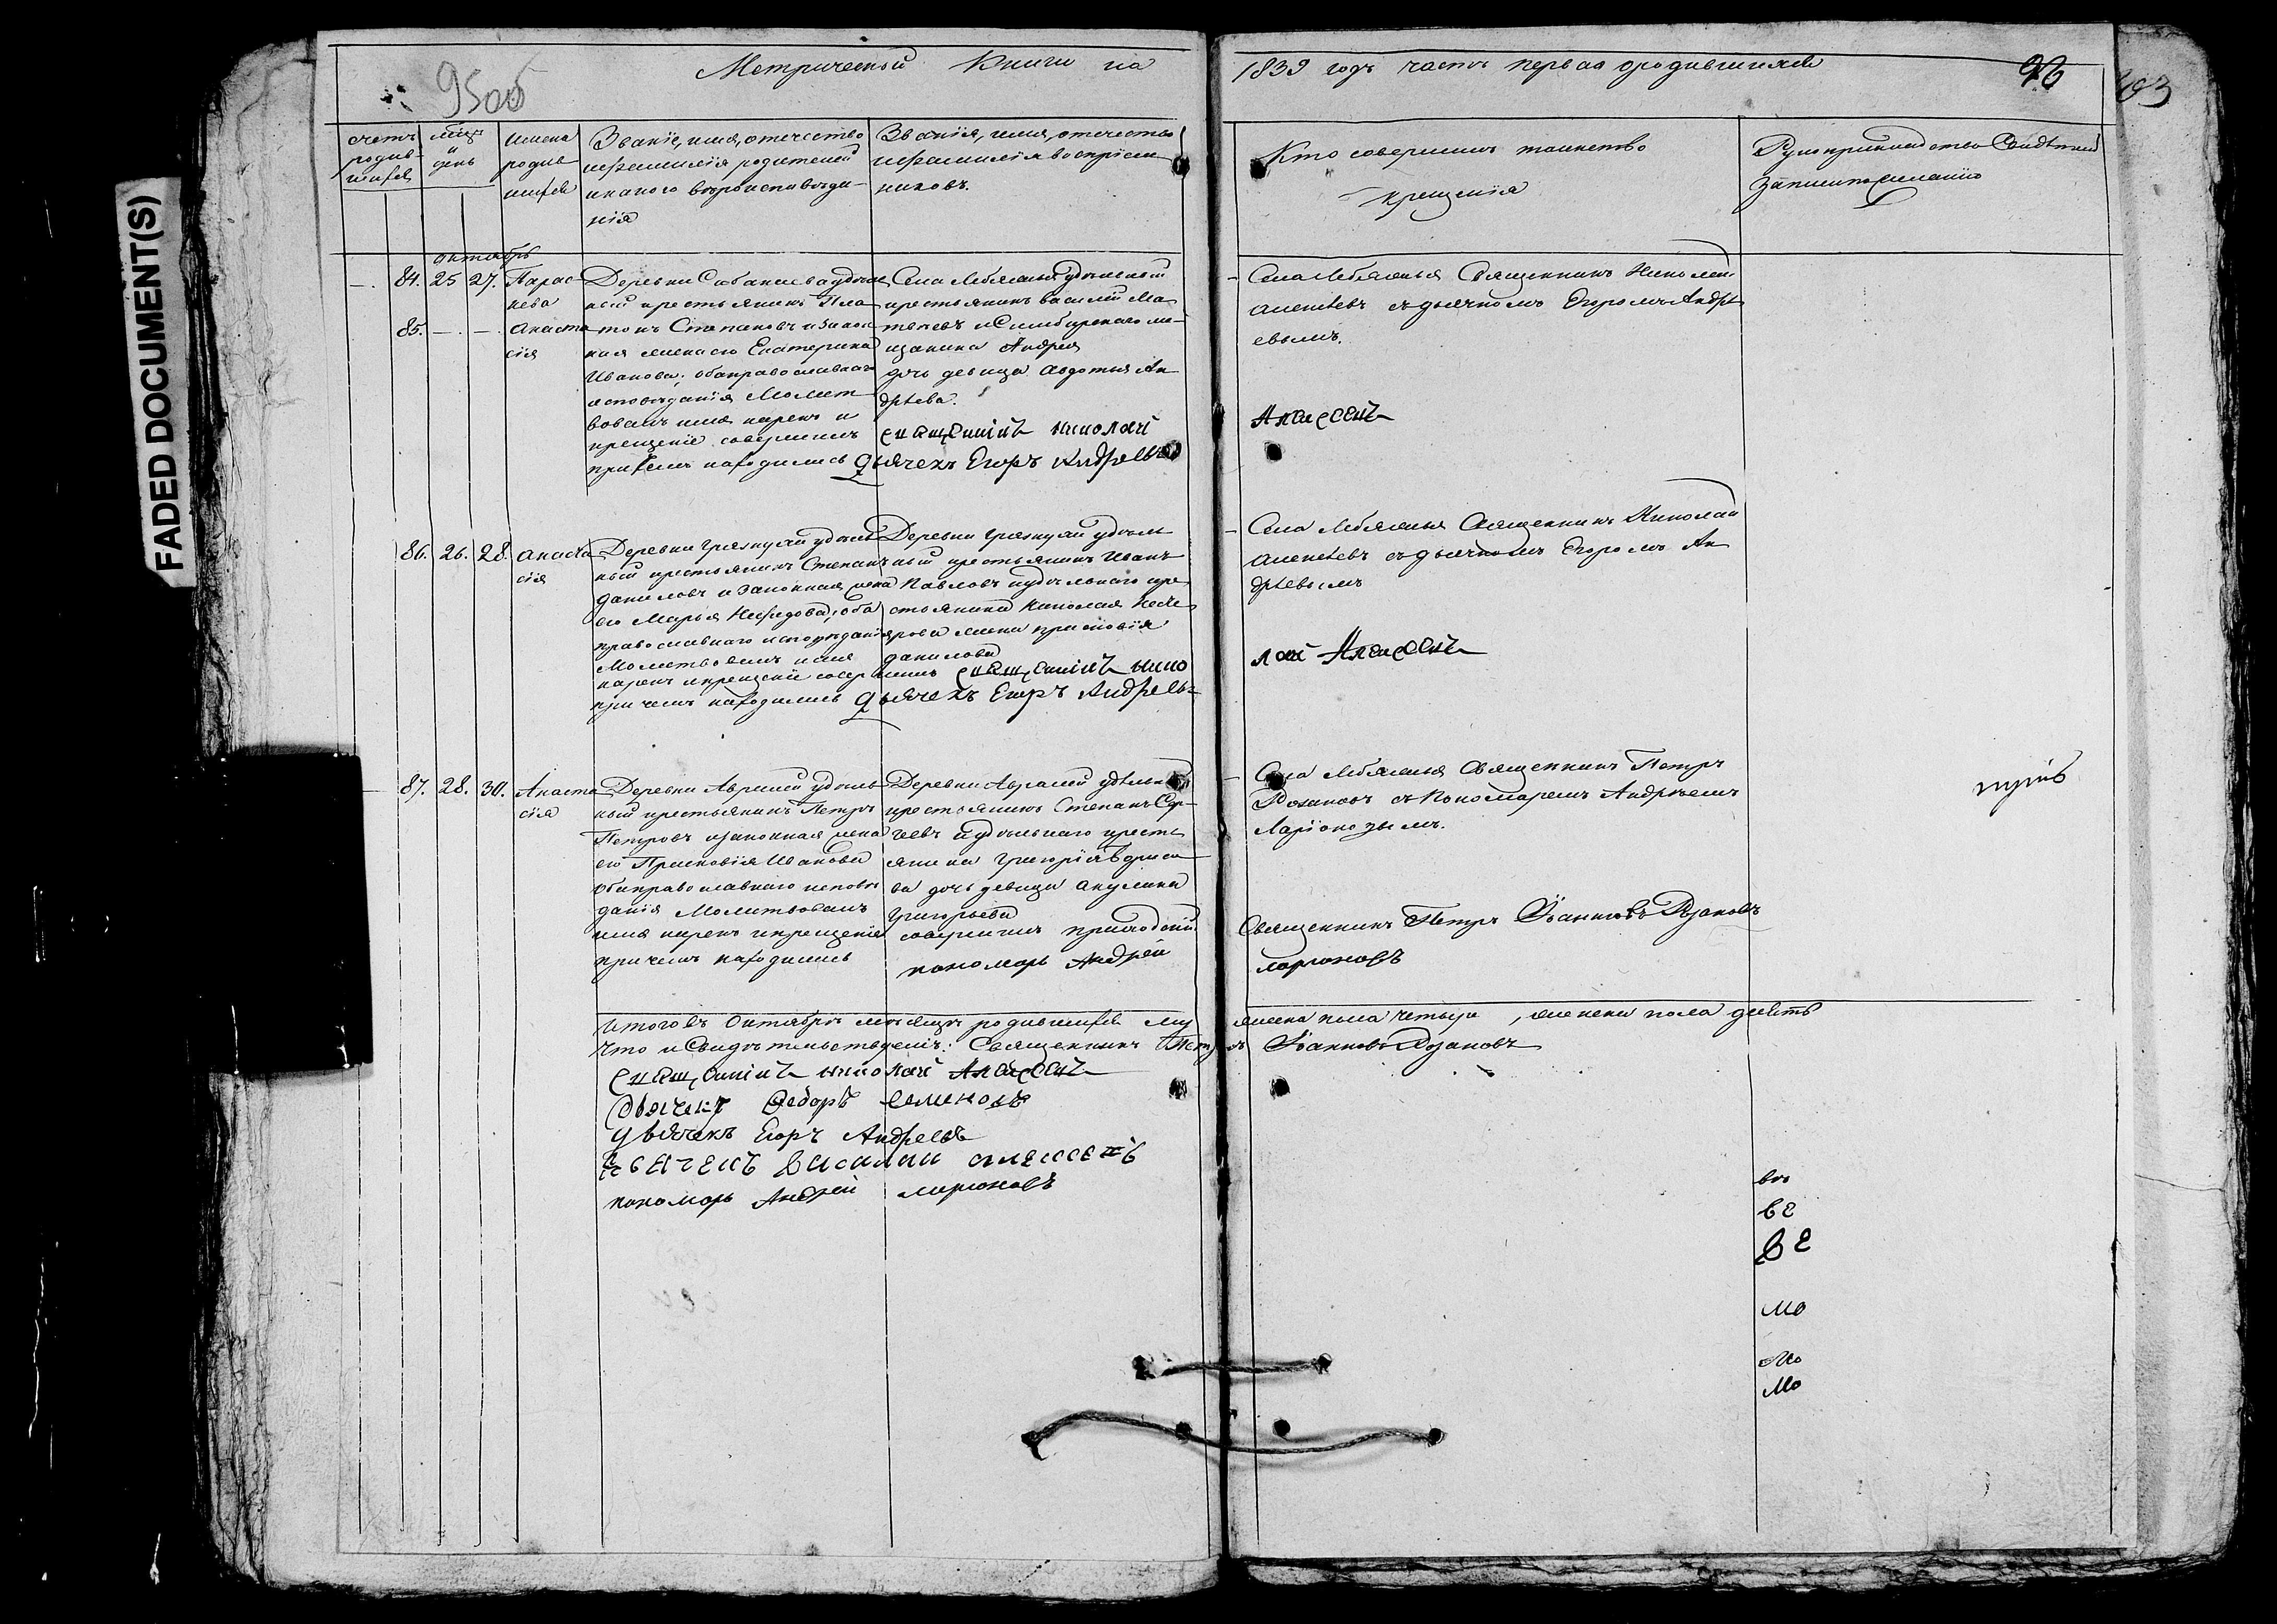 FADED DOCUMENT(S)
95об
Метрической Книги на
1839 годъ часть первая ородившихся
96
103
счетъ родив-шихся
мцъ и день
имена родив шихся
Званіе, имя, отечество
ифамилія родителей
икакого вѣроисповѣда-
нія
Званія, имя, отечество
ифамилія воспріем
никовъ.
Кто совершилъ таинство
крещенія
Рукоприкладство Свидѣтелей
записи пожеланію
октябрь
84. 25 27. Парас
кева
85. — — Анаста
сія
Деревни Сабакаева удѣль
ный крестьянинъ Пла
тонъ Степановъ изакон
ная жена его Екатерина
Иванова; оба православнаго
исповѣданія Молит
вовалъ имя нарекъ и
крещеніе совершилъ
прикемъ находились
Села Лебяжья удѣльный
крестьянинъ Василій Ма
твѣевъ и Симбирскаго мѣ
щанина Андрея
дочь девица Авдотья Ан
дрѣева.
священникъ николай
дьячекъ Егоръ Андреевъ
Села Лебяжья Священникъ Николай
Алексѣевъ съдьячкомъ Егоромъ Андрѣ
евымъ.
Алексеевъ
86. 26. 28. Анаста
сія
Деревни Грязнухи удѣль
ный крестьянинъ Степанъ
Даниловъ и законная жена
его Марья Нефедова; оба
православнаго исповѣданія
Молитвовалъ имя
нарекъ икрещеніе совершилъ
причемъ находились
Деревни Грязнухи удѣль
ный крестьянинъ Иванъ
Павловъ иудѣльнаго кре
стьянина Николая
жена прасковія
Данилова
священникъ нико
дьячекъ Егоръ Андреевъ
Села Лебяжья Священникъ Николай
Алексѣевъ съдьячкомъ Егоромъ Ан
дрѣевымъ
лай Алексеевъ
87. 28. 30. Анаста
сія
Деревни Авралей удѣль
ный крестьянинъ Петръ
Петровъ изаконная жена
его Прасковія Иванова
оба православнаго исповѣ
данія Молитвовалъ
имя нарекъ икрещеніе
причемъ находились
Деревни Авралей удѣльный
крестьянинъ Степанъ Сер-
геевъ иудѣльнаго кресть
янина Григорія
ва дочь девица Акулина
Григорьева
совершилъ приходскій
пономарь Андрей
Села Лебяжья Священникъ Петръ
Розановъ съПономаремъ Андрѣемъ
Ларіоновымъ.
Священникъ Петръ Іоанновъ Розановъ
ларионовъ
Итого въ Октябрѣ мѣсяцѣ родившихся му
жеска пола четыре, женска пола девять
Что и Свидѣтельствуемъ: Священникъ Пет
ръ Іоанновъ Розановъ
священникъ николай Алексеевъ
Дьячекъ Федоръ Семеновъ
Дьячекъ Егоръ Андреевъ
Дьячекъ Василий алексеевъ
пономарь Андрей ларионовъ
въ
ве
ве
мо
мо
мо